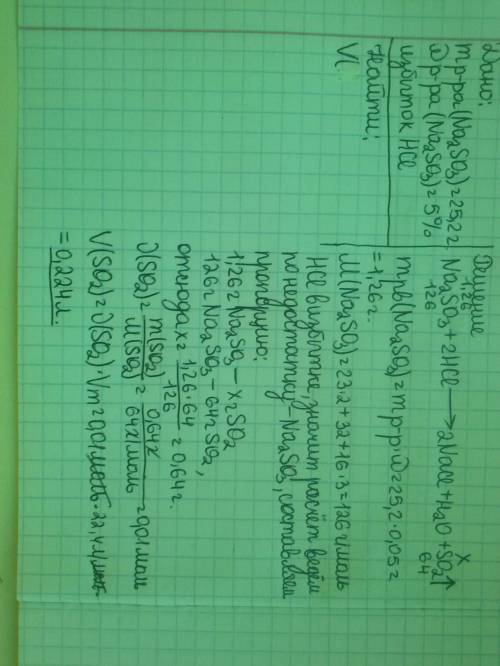 Дано:
mр-ра(Na₂SO₃)=25,2г.
ωр-ра(Na₂SO₃)=5%
избыток HCl
Найти:
V(
Решение
1,26 x
Na₂SO₃+2HCl⟶2NaCl+H₂O+SO₂↑
126 64
mрв(Na₂SO₃)=mр-р·ω=25,2·0,05=
=1,26г.
M(Na₂SO₃)=23·2+32+16·3=126г/моль
HCl в избытке, значит расчёт ведём
по недостатку-Na₂SO₃, составляем
пропорцию:
1,26г Na₂SO₃ — x г SO₂
126г Na₂SO₃ — 64г SO₂,
отнюда x = 1,26·64/126 = 0,64г.
ν(SO₂)= m(SO₂)/M(SO₂) = 0,64г/64г/моль = 0,01моль
V(SO₂)=ν(SO₂)·Vm=0,01моль·22,4л/моль=
=0,224л.